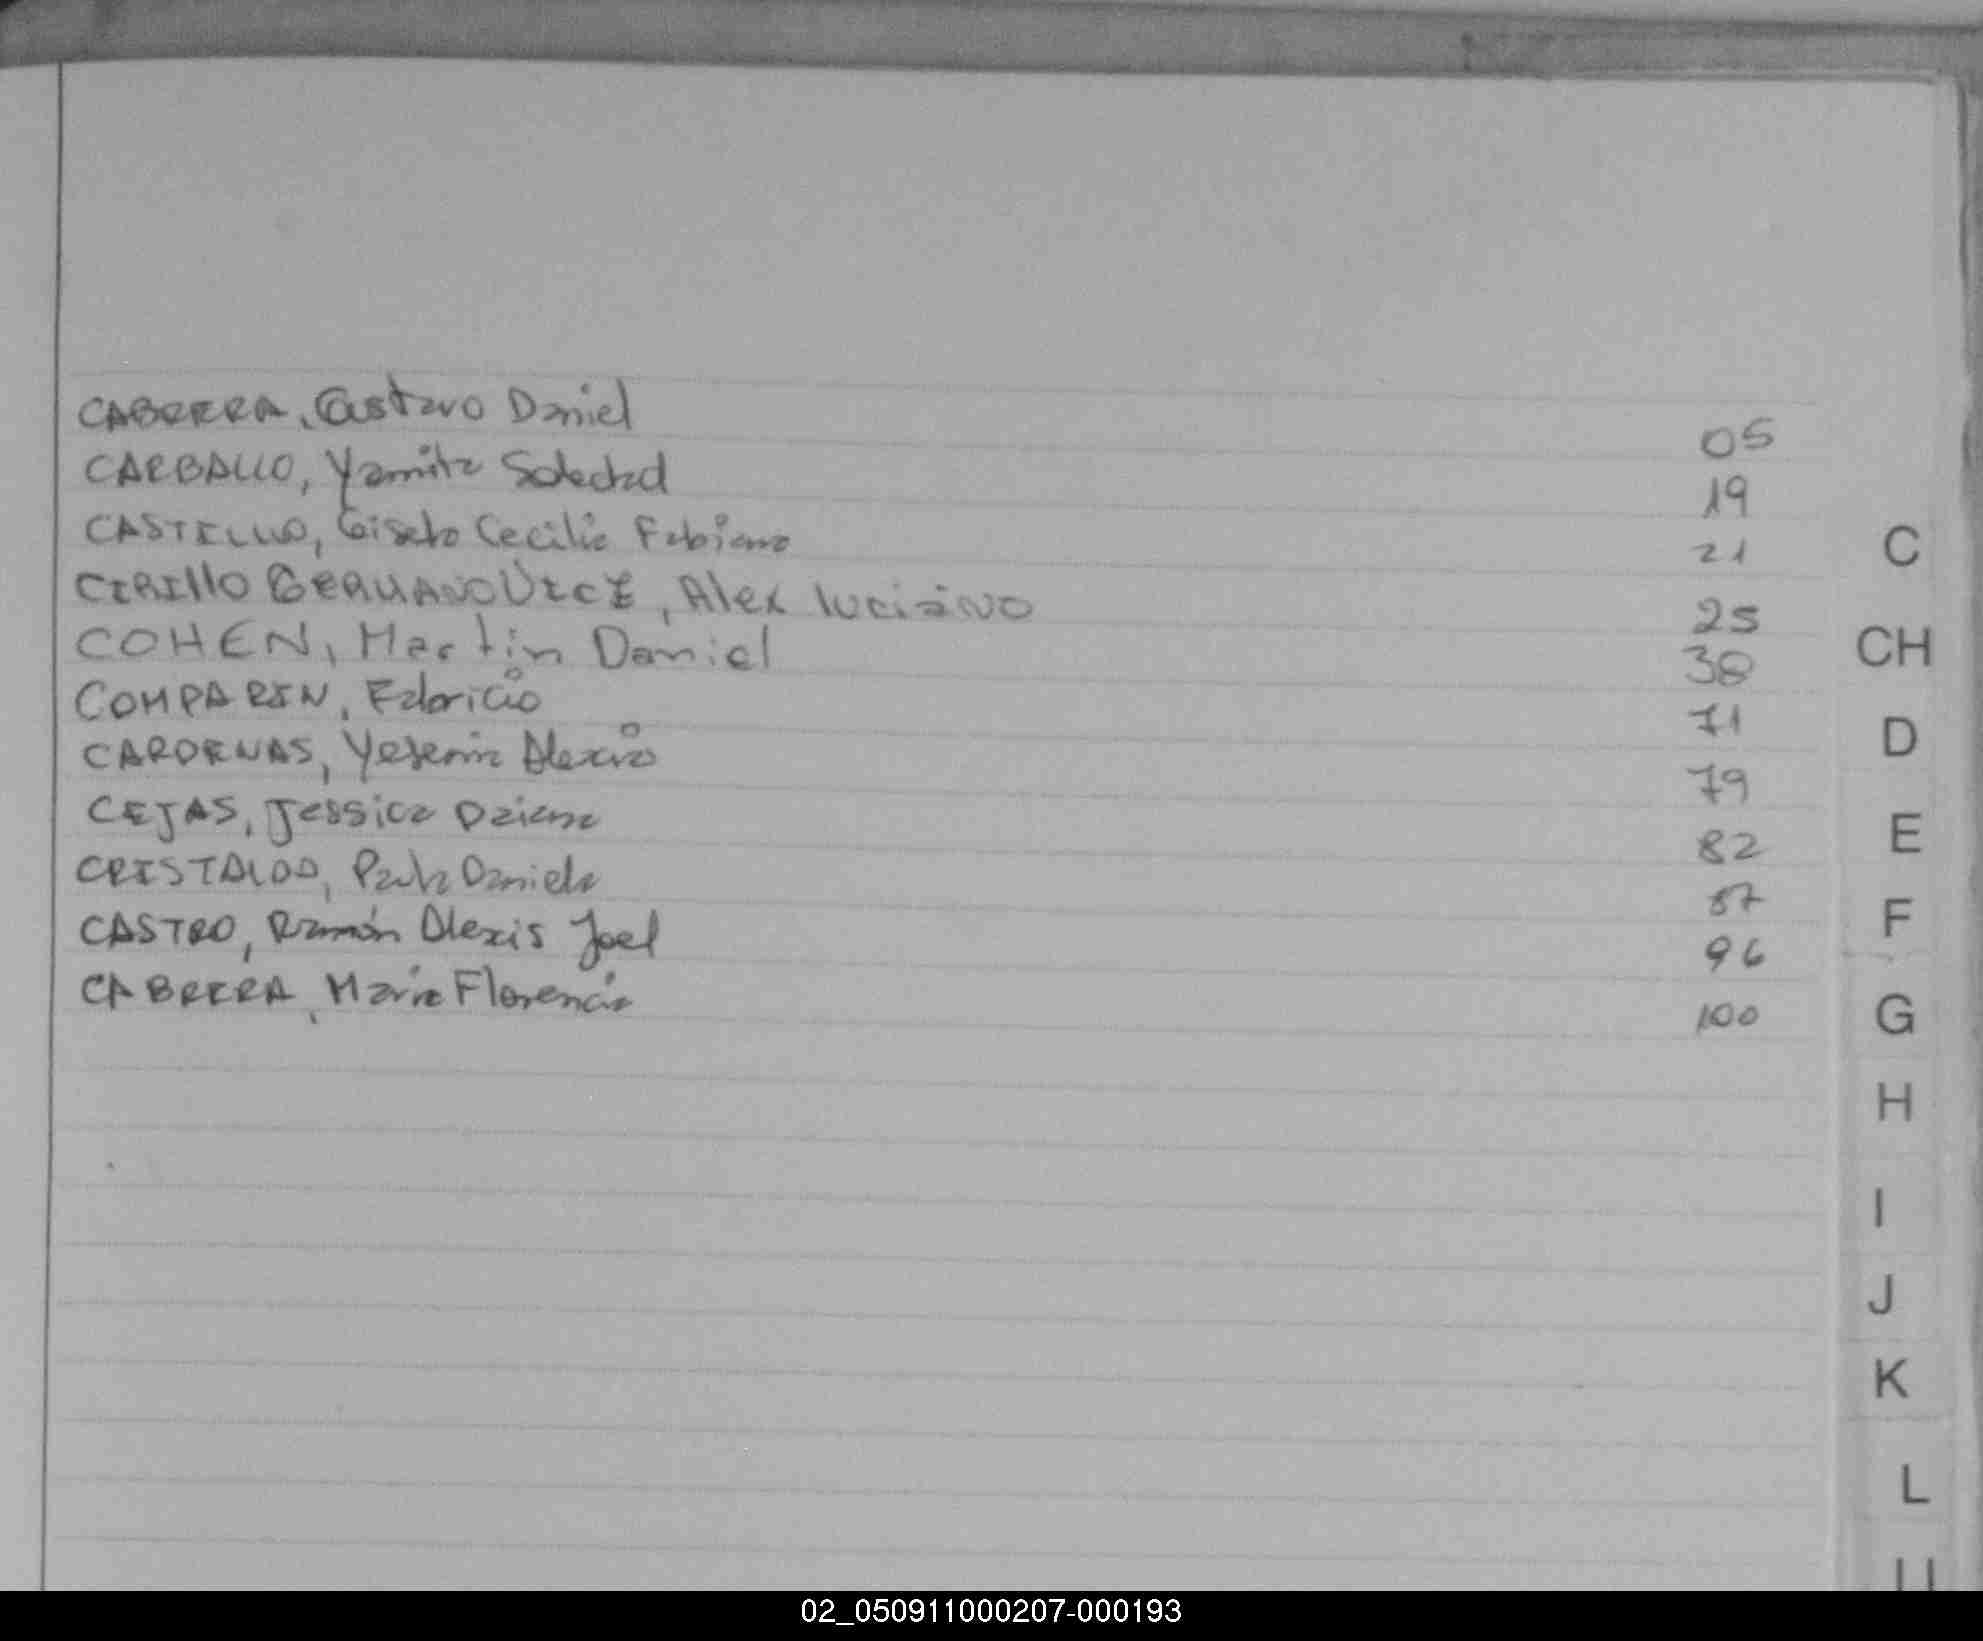 CABRERA, Gustavo Daniel 05
CARBALLO, Yamila Soledad 19
CASTELLO, Gisela Cecilia Fabiana 21
CIRILLO, Alex Luciano 25
COHEN, Martin Daniel 38
COMPARIN, Fabricio 71
CARDENAS, Yesenia Alexia 79
CEJAS, Jessica Daiana 82
CRISTALDO, Paula Daniela 87
CASTRO, Ramón Alexis Joel 96
CABRERA, María Florencia 100
C
CH
D
E
F
G
H
I
J
K
L
02_050911000207-000193